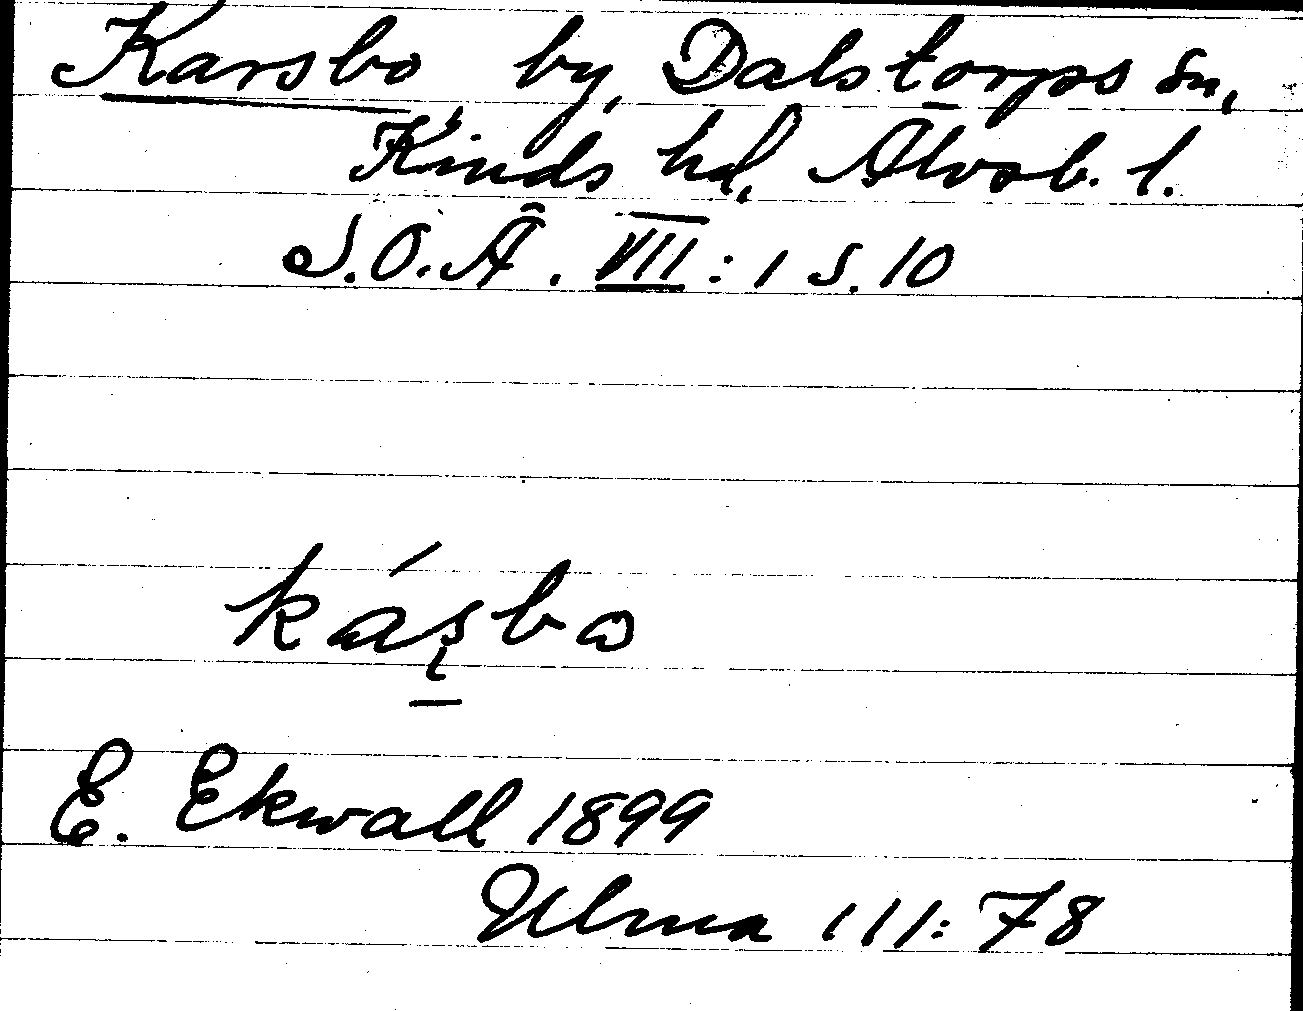 Karsbo by, Dalstorps sn,
Kinds hd, Älvsb. l.
S.O.Ä. VII:1 S.10
kás̨bɷ
E. Ekwall 1899
Ulma 111:78